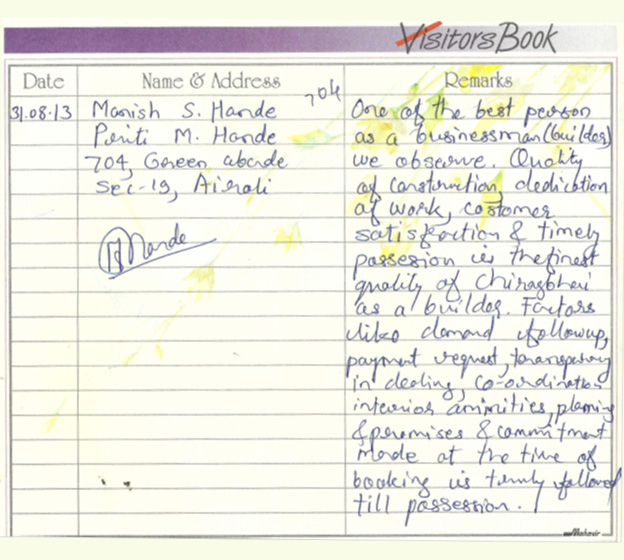 Visitors Book
Date
Name & Address
Remarks
31.08.13
Manish S. Hande
Priti M. Hande
704, Green abode
Sec-19, Airoli
704
Hande
One of the best person
as a businessman (builder)
we observe. Quality
of construction, dedication
of work, costomer
satisfaction & timely
possession is the finest
quality of Chiragbhai
as a builder. Factors
like demand followup,
payment request, transparency
in dealing, co-ordination
interior aminities, planning
& premises & commitment
made at the time of
booking is timly followed
till possession.
Mahavir